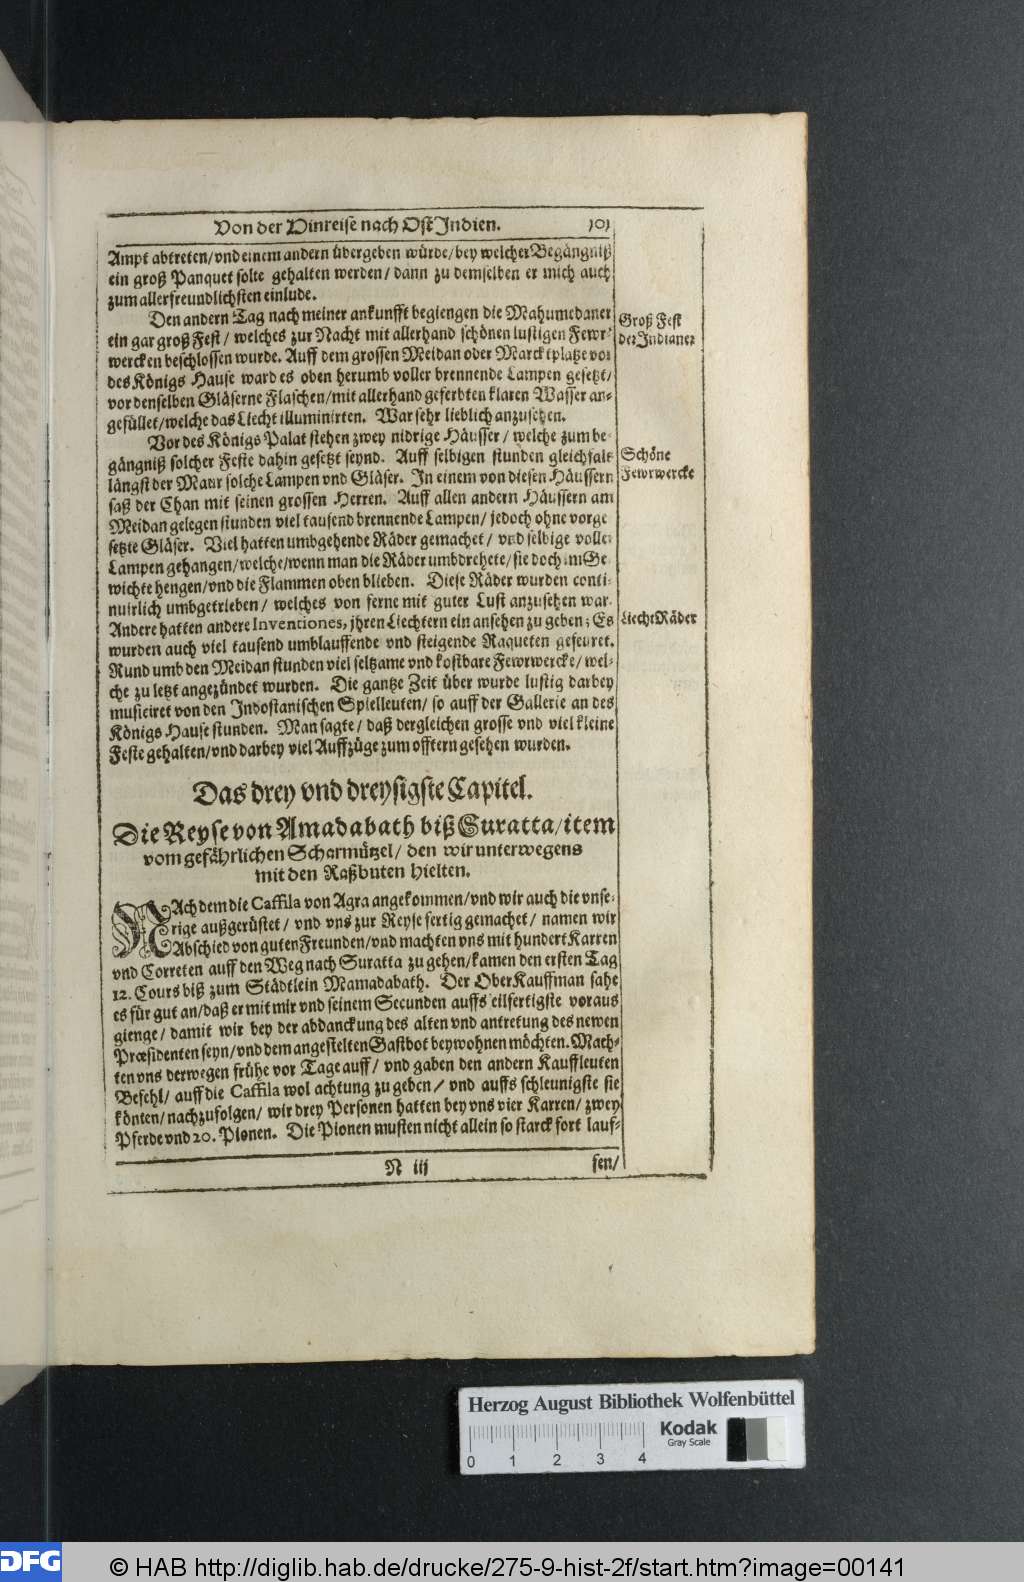 Von der Hinreise nach Ost Indien. 101
Ampt abtreten/ vnd einem andern übergeben würde/ bey welcher Begängniß
ein groß Panquet solte gehalten werden/ dann zu demselben er mich auch
zum allerfreundlichsten einlude.
Den andern Tag nach meiner ankunfft begiengen die Mahumedaner
ein gar groß Fest/ welches zur Nacht mit allerhand schönen lustigen Fewr-
wercken beschlossen wurde. Auff dem grossen Meidan oder Marcktplatze vor
des Königs Hause ward es oben herumb voller brennende Lampen gesetzt/
vor denselben Gläserne Flaschen/ mit allerhand geferbten klaren Wasser an-
gefüllet/ welche das Liecht illuminirten. War sehr lieblich anzusehen.
Groß Fest
der Indianer
Vor des Königs Palat stehen zwey nidrige Häusser/ welche zum be-
gängniß solcher Feste dahin gesetzt seynd. Auff selbigen stunden gleichfals
längst der Maur solche Lampen vnd Gläser. In einem von diesen Häussern
saß der Chan mit seinen grossen Herren. Auff allen andern Häussern am
Meidan gelegen stunden viel tausend brennende Lampen/ jedoch ohne vorge
setzte Gläser. Viel hatten umbgehende Räder gemachet/ vnd selbige voller
Lampen gehangen/ welche/ wenn man die Räder umbdrehete/ sie doch im Ge-
wichte hengen/ vnd die Flammen oben blieben. Diese Räder wurden conti-
nuirlich umbgetrieben/ welches von ferne mit guter Lust anzusehen war.
Andere hatten andere Inventiones, jhren Liechtern ein ansehen zu geben; Es
wurden auch viel tausend umblauffende vnd steigende Raqueten gefeuret.
Rund umb den Meidan stunden viel seltzame vnd kostbare Fewrwercke/ wel-
che zu letzt angezündet wurden. Die gantze Zeit über wurde lustig darbey
musiciret von den Indostanischen Spielleuten/ so auff der Gallerie an des
Königs Hause stunden. Man sagte/ daß dergleichen grosse vnd viel kleine
Feste gehalten/ vnd darbey viel Auffzüge zum offtern gesehen wurden.
Schöne
Fewrwercke
Liecht Räder
Das drey vnd dreysigste Capitel.
Die Reyse von Amadabath biß Suratta/ item
vom gefährlichen Scharmützel/ den wir unterwegens
mit den Raßbuten hielten.
NAch dem die Caffila von Agra angekommen/ vnd wir auch die vnse-
rige außgerüstet/ vnd vns zur Reyse fertig gemachet/ namen wir
Abschied von guten Freunden/ vnd machten vns mit hundert Karren
vnd Correten auff den Weg nach Suratta zu gehen/ kamen den ersten Tag
12. Cours biß zum Städtlein Mamadabath. Der Ober Kauffman sahe
es für gut an/ daß er mit mir vnd seinem Secunden auffs eilfertigste voraus
gienge/ damit wir bey der abdanckung des alten vnd antretung des newen
Præsidenten seyn/ vnd dem angestelten Gastbot beywohnen möchten. Mach-
ten vns derwegen frühe vor Tage auff/ vnd gaben den andern Kauffleuten
Befehl/ auff die Caffila wol achtung zu geben/ vnd auffs schleunigste sie
könten/ nachzufolgen/ wir drey Personen hatten bey vns vier Karren/ zwey
Pferde vnd 20. Pionen. Die Pionen musten nicht allein so starck fort lauf-
N iij fen/
Herzog August Bibliothek Wolfenbüttel
Kodak
Gray Scale
0 1 2 3 4
DFG © HAB http://diglib.hab.de/drucke/275-9-hist-2f/start.htm?image=00141